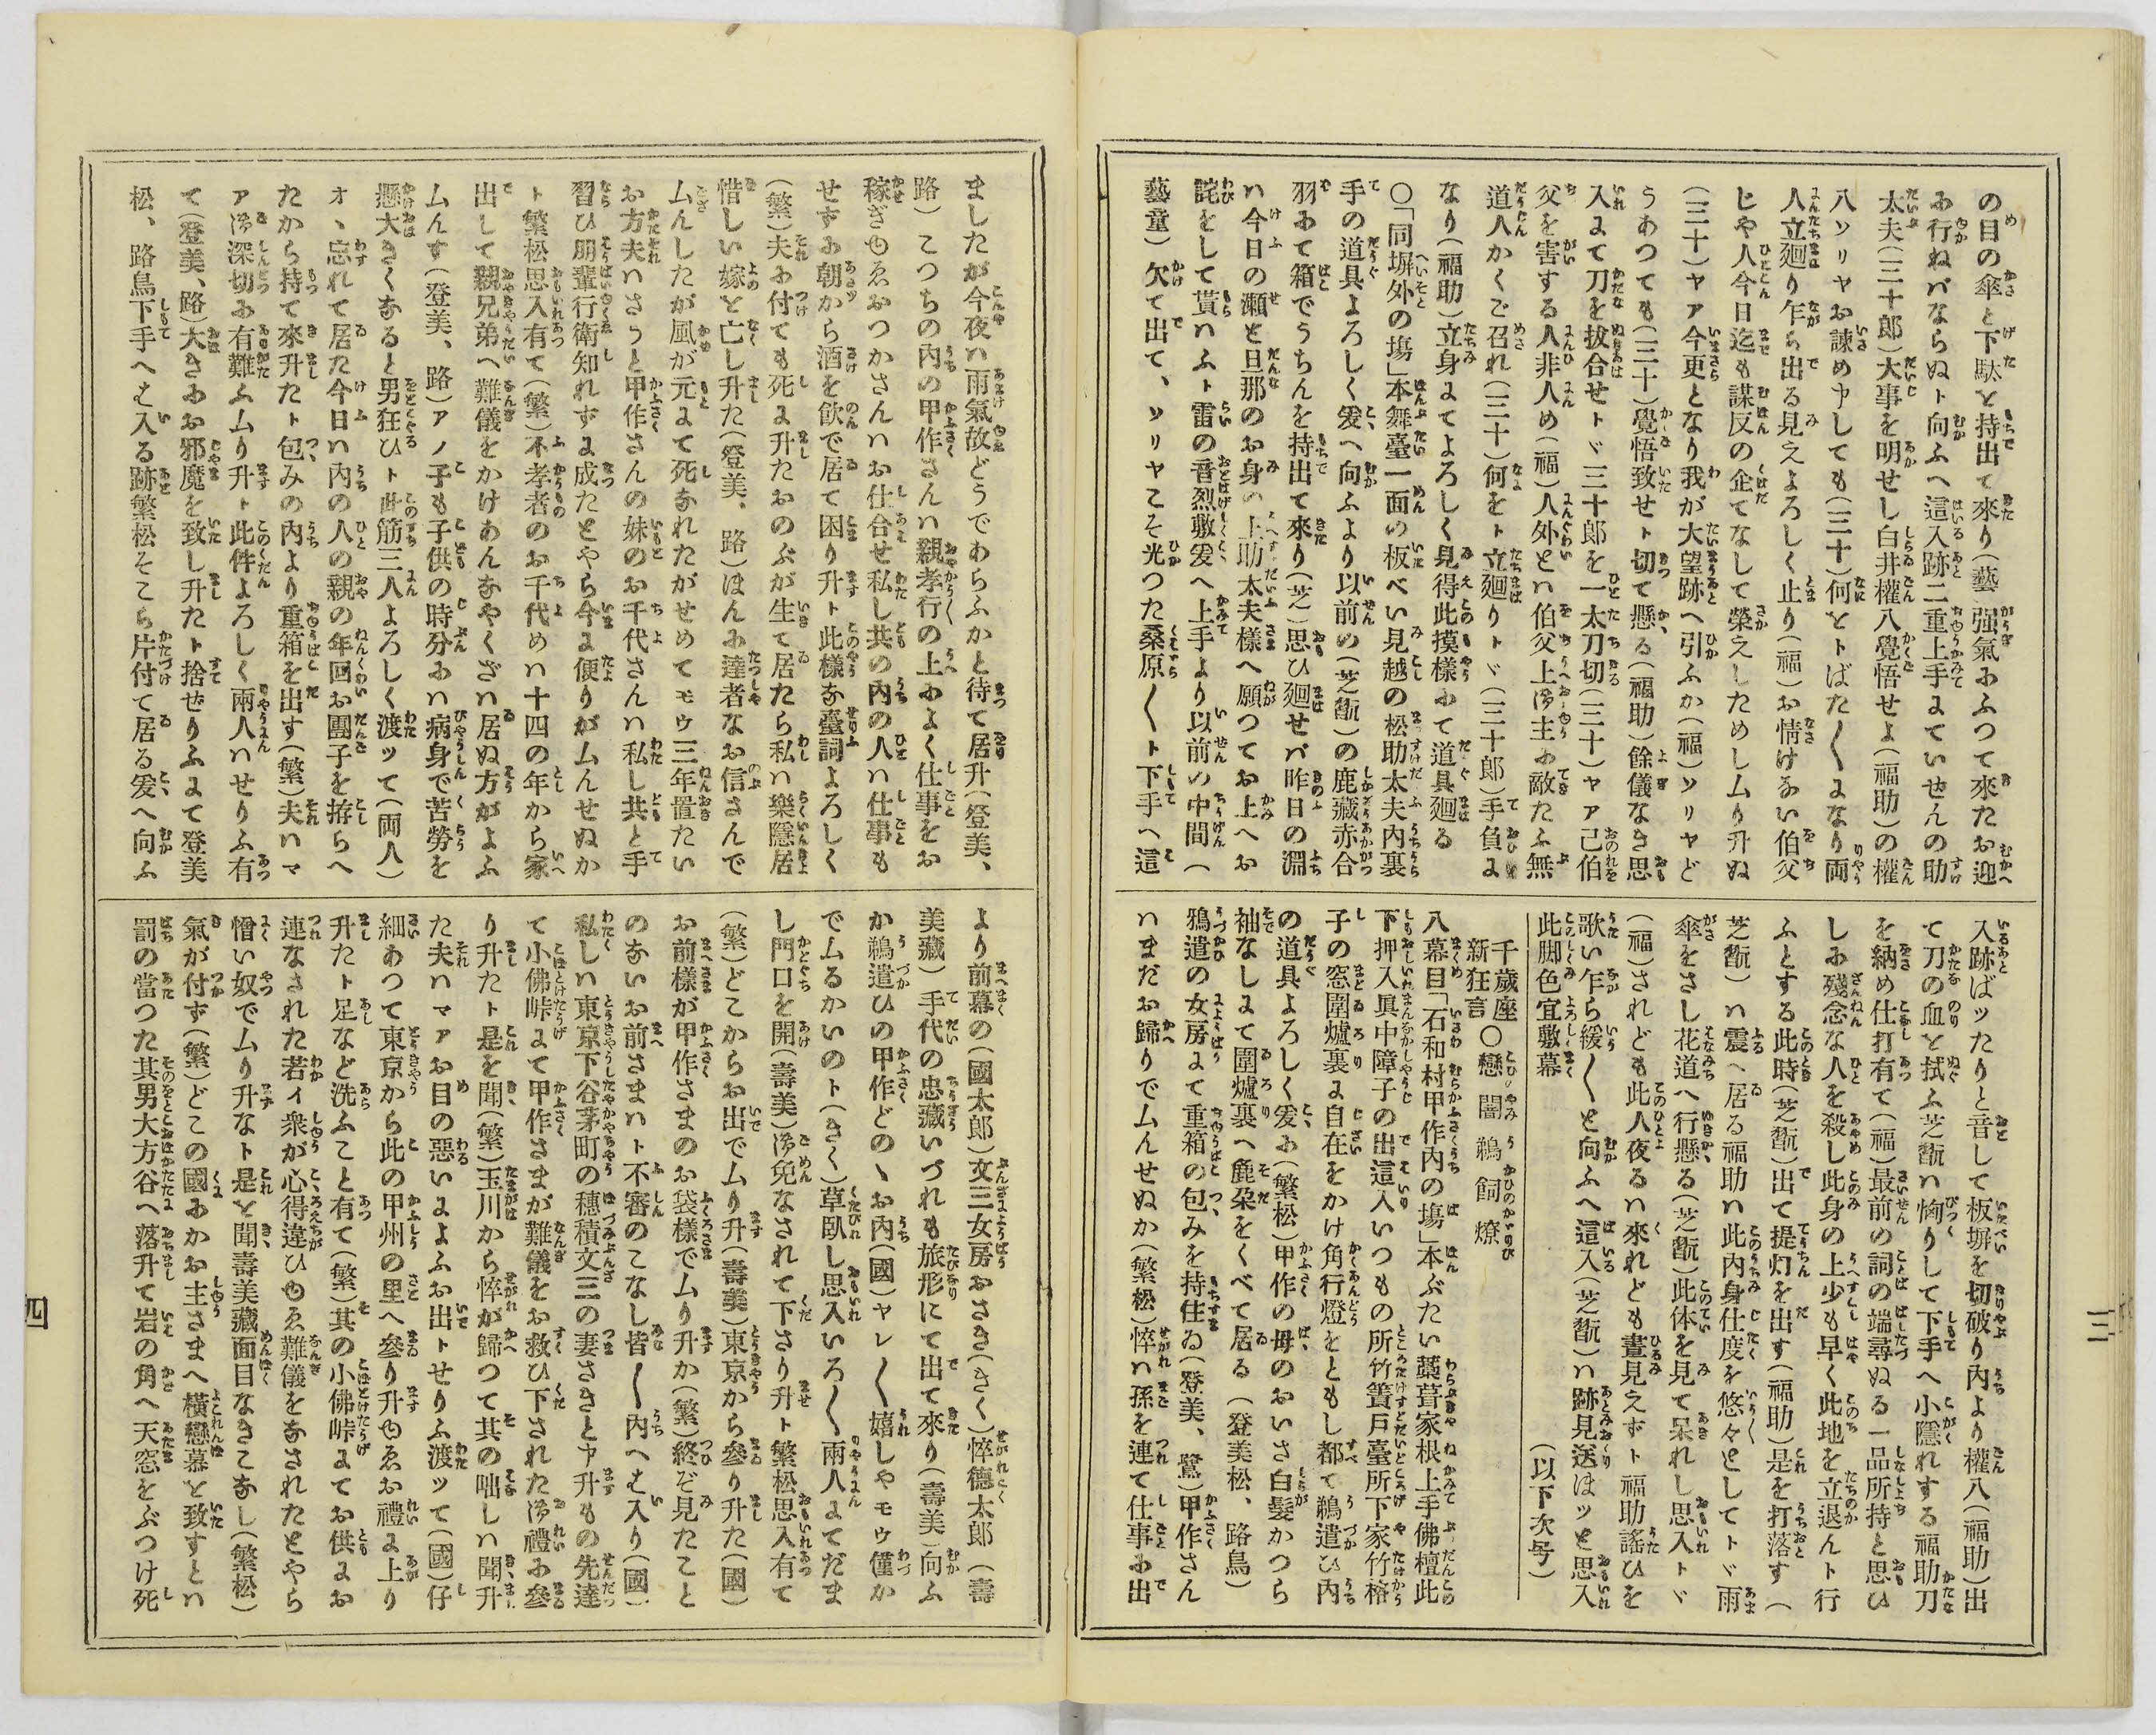 の目の傘と下駄を持出て來り(藝 强氣にふつて來たお迎
に行ねバならぬト向ふへ這入跡二重上手にていせんの助
太夫(三十郎)大事を明せし白井權八覺悟せよ(福助)の權
八ソリヤお諫め申しても(三十)何をトばた〱になり両
人立廻り乍ら出る見えよろしく止り(福)お情けない伯父
じや人今日迄も謀反の企てなして榮えしためしムり升ぬ
(三十)ヤア今更となり我が大望跡へ引ふか(福)ソリヤど
うあつても(三十)覺悟致せト切て懸る(福助)餘儀なき思
入にて刀を拔合せトヾ三十郎を一太刀切(三十)ヤア己伯
父を害する人非人め(福)人外とハ伯父上御主に敵たふ無
道人かくご召れ(三十)何をト立廻りトヾ(三十郎)手負に
なり(福助)立身にてよろしく見得此摸樣にて道具廻る
〇「同塀外の塲」本舞臺一面の板べい見越の松助太夫内裏
手の道具よろしく爰へ向ふより以前の(芝翫)の鹿藏赤合
羽にて箱でうちんを持出て來り(芝)思ひ廻せバ昨日の淵
ハ今日の瀬と旦那のお身の上助太夫樣へ願つてお上へお
詫をして貰ハふト雷の音烈敷爰へ上手より以前の中間(
藝童)欠て出て、ソリヤこそ光つた桑原〱ト下手へ這
入跡ばツたりと音して板塀を切破り内より權八(福助)出
て刀の血を拭ふ芝翫ハ恟りして下手へ小隱れする福助刀
を納め仕打有て(福)最前の詞の端尋ぬる一品所持と思ひ
しに殘念な人を殺し此身の上少も早く此地を立退んト行
ふとする此時(芝翫)出て提灯を出す(福助)是を打落す(
芝翫)ハ震へ居る福助ハ此内身仕度を悠々としてトヾ雨
傘をさし花道へ行懸る(芝翫)此体を見て呆れし思入トヾ
(福)されども此人夜るハ來れども晝見えずト福助謠ひを
歌い乍ら緩〱と向ふへ這入(芝翫)ハ跡見送はツと思入
此脚色宜敷幕 (以下次号)
千歲座
新狂言 〇戀闇鵜飼燎
八幕目「石和村甲作内の塲」本ぶたい藁葺家根上手佛檀此
下押入眞中障子の出這入いつもの所竹簀戸臺所下家竹格
子の窓圍爐裏に自在をかけ角行燈をともし都て鵜遣ひ内
の道具よろしく爰に(繁松)甲作の母のおいさ白髮かつら
袖なしにて圍爐裏へ麁朶をくべて居る(登美松、路鳥)
鴉遣の女房にて重箱の包みを持住ゐ(登美、鷺)甲作さん
ハまだお歸りでムんせぬか(繁松)悴ハ孫を連て仕事に出
ましたが今夜ハ雨氣故どうでわらふかと待て居升(登美、
路)こつちの内の甲作さんハ親孝行の上によく仕事をお
稼ぎゆゑおつかさんハお仕合せ私し共の内の人ハ仕事も
せずに朝から酒を飮で居て困り升ト此樣な臺詞よろしく
(繁)夫に付ても死に升たおのぶが生て居たら私ハ樂隱居
惜しい嫁と亡し升た(登美、路)ほんに達者なお信さんで
ムんしたが風が元にて死なれたがせめてモウ三年置たい
お方夫ハさうと甲作さんの妹のお千代さんハ私し共と手
習ひ朋輩行衛知れずに成たとやら今に便りがムんせぬか
ト繁松思入有て(繁)不孝者のお千代めハ十四の年から家
出して親兄弟へ難儀をかけあんなやくざハ居ぬ方がよふ
ムんす(登美、路)アノ子も子供の時分にハ病身で苦勞を
懸大きくなると男狂ひト此筋三人よろしく渡ツて(両人)
オヽ忘れて居た今日ハ内の人の親の年囘お團子を拵らへ
たから持て來升たト包みの内より重箱を出す(繁)夫ハマ
ア御深切に有難ふムり升ト此件よろしく兩人ハせりふ有
て(登美、路)大きにお邪魔を致し升たト捨ぜりふにて登美
松、路鳥下手へ這入る跡繁松そこら片付て居る爰へ向ふ
より前幕の(國太郎)文三女房おさき(きく)悴德太郎(壽
美藏)手代の忠藏いづれも旅形にて出て來り(壽美)向ふ
か鵜遣ひの甲作どのヽお内(國)ヤレ〱嬉しやモウ僅か
でムるかいのト(きく)草臥し思入いろ〱兩人にてだま
し門口を開(壽美)御免なされて下さり升ト繁松思入有て
(繁)どこからお出でムり升(壽美)東京から參り升た(國)
お前樣が甲作さまのお袋樣でムり升か(繁)終ぞ見たこと
のないお前さまハト不審のこなし皆〱内へ這入り(國)
私しハ東京下谷茅町の穗積文三の妻さきと申升もの先達
て小佛峠にて甲作さまが難儀をお救ひ下された御禮に參
り升たト是を聞(繁)玉川から悴が歸つて其の咄しハ聞升
た夫ハマアお目の惡いによふお出トせりふ渡ツて(國)仔
細あつて東京から此の甲州の里へ參り升ゆゑお禮に上り
升たト足など洗ふこと有て(繁)其の小佛峠にてお供にお
連なされた若イ衆が心得違ひゆゑ難儀をなされたとやら
憎い奴でムり升なト是を聞壽美藏面目なきこなし(繁松)
氣が付ず(繁)どこの國にかお主さまへ橫戀慕を致すとハ
罰の當つた其男大方谷へ落升て岩の角へ天窓をぶつけ死
三
四